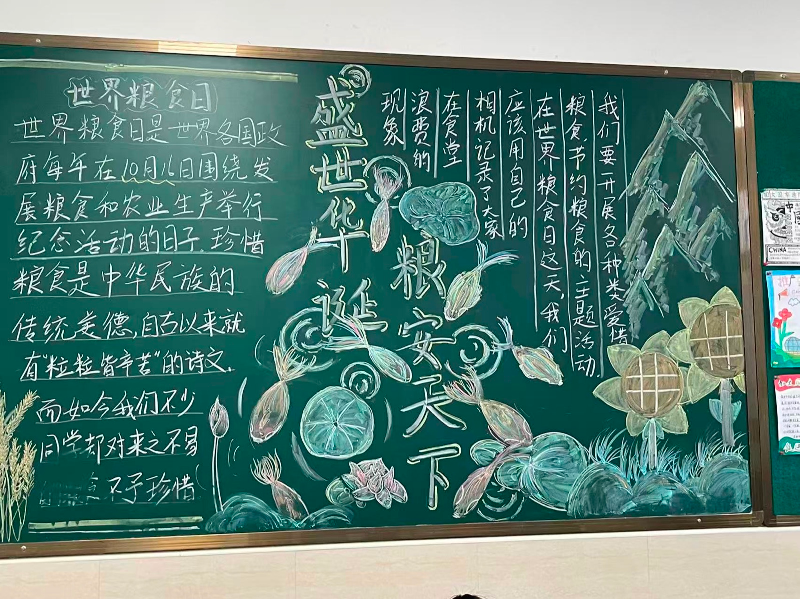 世界粮食日
世界粮食日是世界各国政
府每年在10月16日围绕发
展粮食和农业生产举行
纪念活动的日子.珍惜
粮食是中华民族的
传统美德,自古以来就
有"粒粒皆辛苦"的诗文.
而如今我们不少
同学却对来之不易
不予珍惜
盛世华诞
粮安天下
我们要开展各种类爱惜
粮食节约粮食的主题活动.
在世界粮食日这天,我们
应该用自己的
相机记录了大家
在食堂
浪费的
现象
CHINA